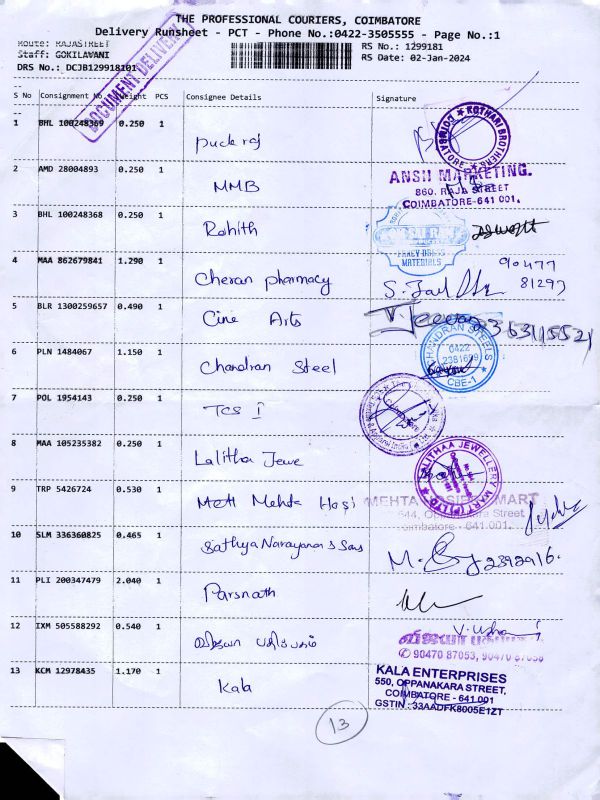 THE PROFESSIONAL COURIERS, COIMBATORE
Delivery Runsheet - PCT - Phone No.:0422-3505555 - Page No.:1
Route: RAJASTREET
Staff: GOKILAWANI
DRS No.: DCJB129918101
RS No.: 1299181
RS Date: 02-Jan-2024
DOCUMENT DELIVERY
S No Consignment No. Weight PCS Consignee Details Signature
1 BHL 100248369 0.250 1
KOTHARI BROTHERS COIMBATORE
2 AMD 28004893 0.250 1 MMB
ANSH MARKETING.
860. RAJA STREET
COIMBATORE-641 001.
3 BHL 100248368 0.250 1 Rohith
FANCY DRESS
MATERIALS
4 MAA 862679841 1.290 1 Cheran pharmacy
90477
81297
5 BLR 1300259657 0.490 1 Cine Arts
6 PLN 1484067 1.150 1 Chandran Steel
CHANDRAN STEELS
0422
2381699
CBE-1
7 POL 1954143 0.250 1 TCS I
8 MAA 105235382 0.250 1 Lalitha Jewe
LALITHAA JEWELLERY MART (P) LTD
9 TRP 5426724 0.530 1 Mehta Hosi
MEHTA HOSIERY MART
Street
Coimbatore - 641 001.
10 SLM 336360825 0.465 1 Sathya Narayanan & Sons
2392916.
11 PLI 200347479 2.040 1 Parsnath
12 IXM 505588292 0.540 1 விஜயா பதிப்பகம்
விஜயா பதிப்பகம்
90470 87053, 90470 87058
13 KCM 12978435 1.170 1 Kala
KALA ENTERPRISES
550, OPPANAKARA STREET,
COIMBATORE - 641 001
GSTIN : 33AADFK8005E1ZT
13